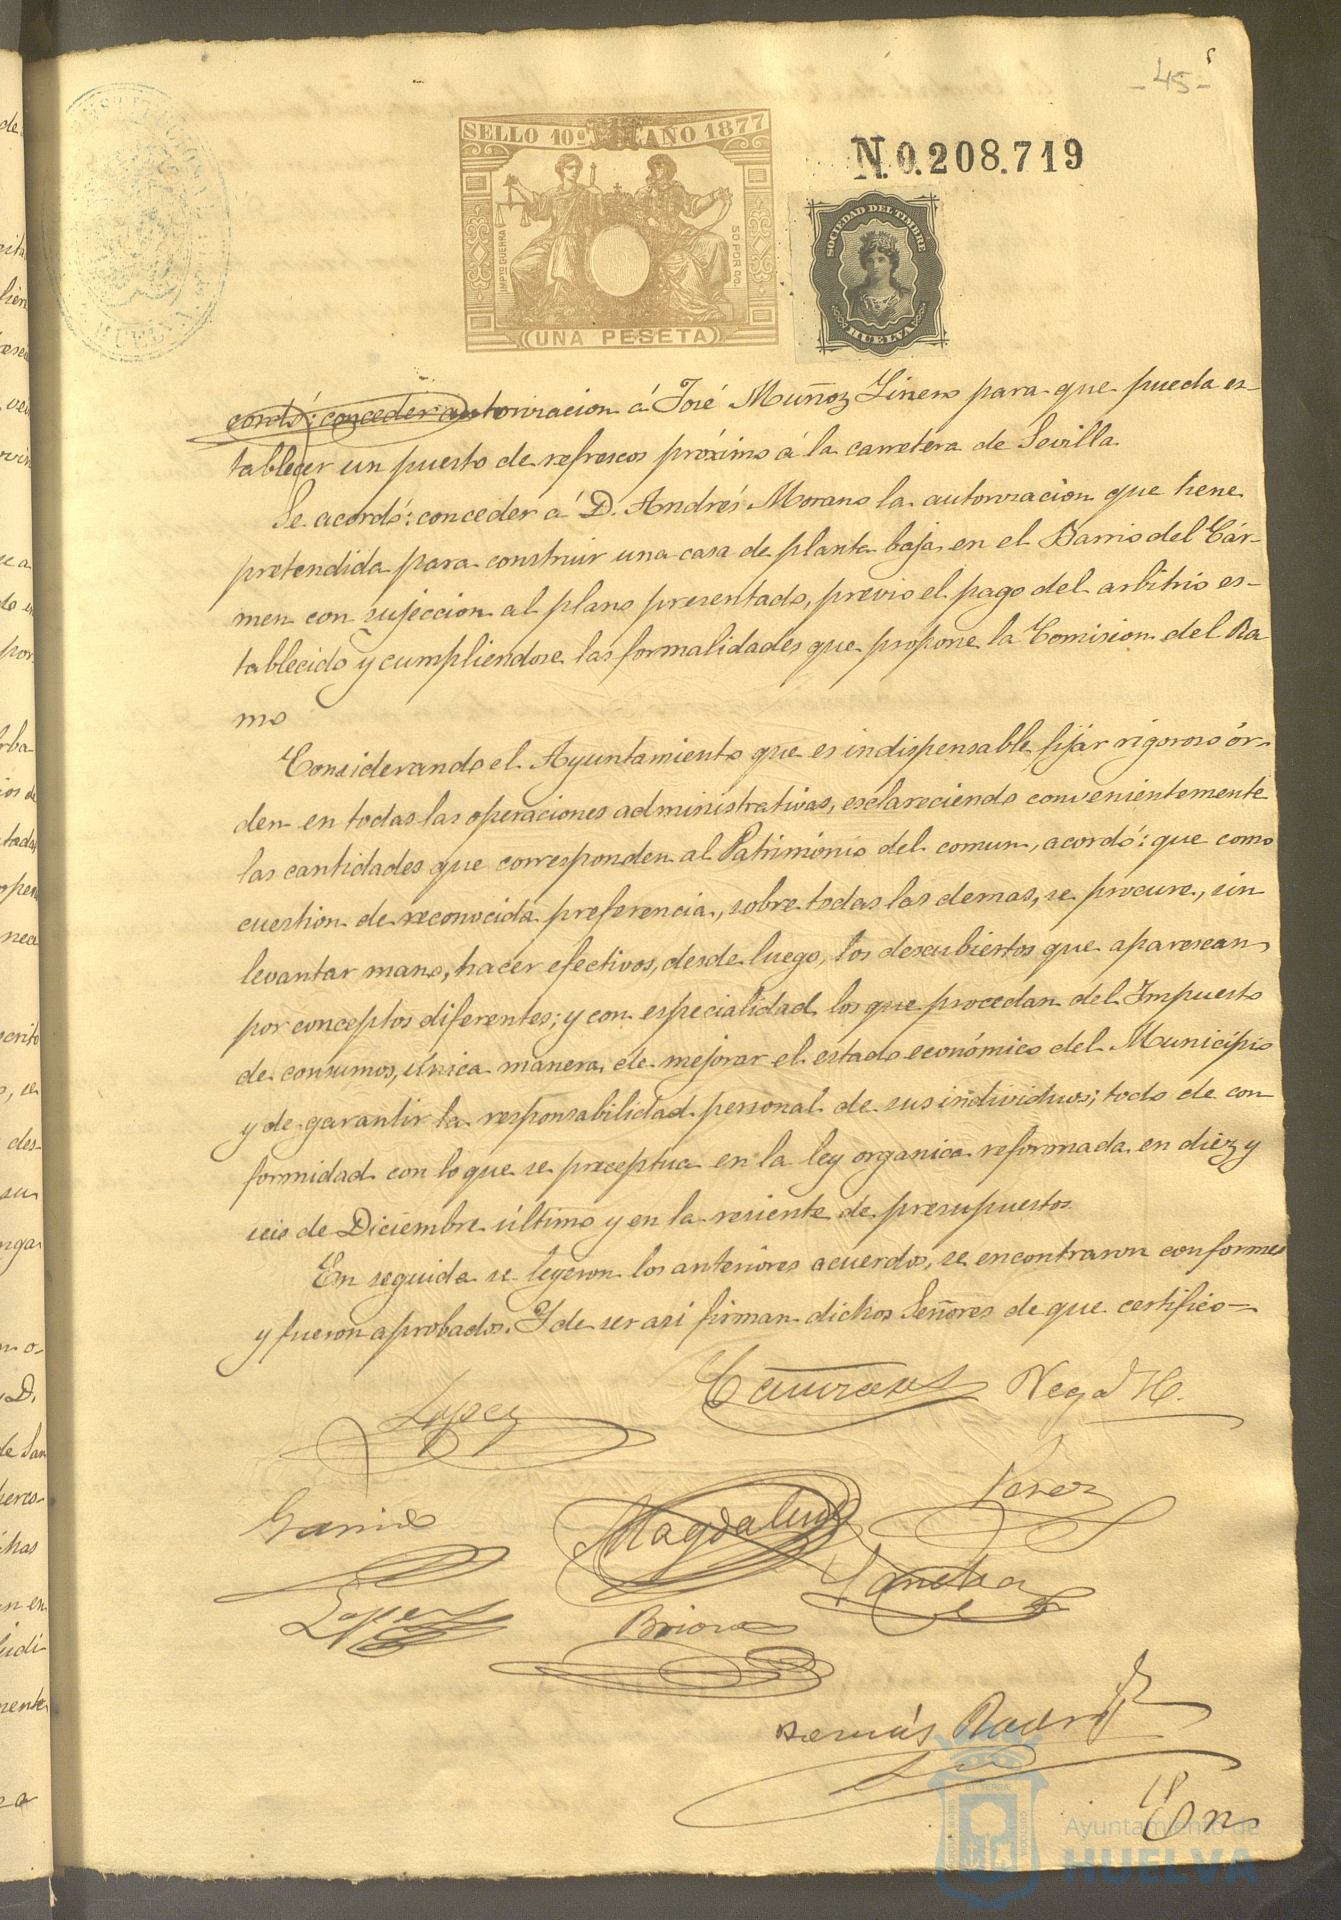 -45-
SELLO 10º AÑO 1877
IMPTO GUERRA
50 POR 00.
UNA PESETA
N.0.208.719
SOCIEDAD DEL TIMBRE
HUELVA
cordó: conceder autorizacion á José Muñoz Linero para que pueda es-
tablecer un puesto de refrescos próximo á la carretera de Sevilla.
Se acordó: conceder á D. Andrés Morano la autorizacion que tiene
pretendida para construir una casa de planta baja en el Barrio del Cár-
men con sujeccion al plano presentado, previo el pago del arbitrio es-
tablecido y cumpliendose las formalidades que propone la Comision del Ra
mo
Considerando el Ayuntamiento que es indispensable fijar rigoroso ór-
den en todas las operaciones administrativas, esclareciendo convenientemente
las cantidades que corresponden al Património del comun, acordó: que como
cuestion de reconocida preferencia, sobre todas las demas, se procure, sin
levantar mano, hacer efectivos, desde luego, los descubiertos que aparescan
por conceptos diferentes; y con especialidad los que procedan del Impuesto
de consumos, única manera de mejorar el estado económico del Município
y de garantir la responsabilidad personal de sus individuos; todo de con
formidad con lo que se preceptua en la ley organica reformada en diez y
seis de Diciembre último y en la resiente de presupuestos.
En seguida se leyeron los anteriores acuerdos, se encontraron conformes
y fueron aprobados. Y de ser asi firman dichos Señores de que certifico=
Lopez
Vega H.
Garrido Magdalena Perez
Lopez Sanchez
Briones
Ayuntamiento de
HUELVA